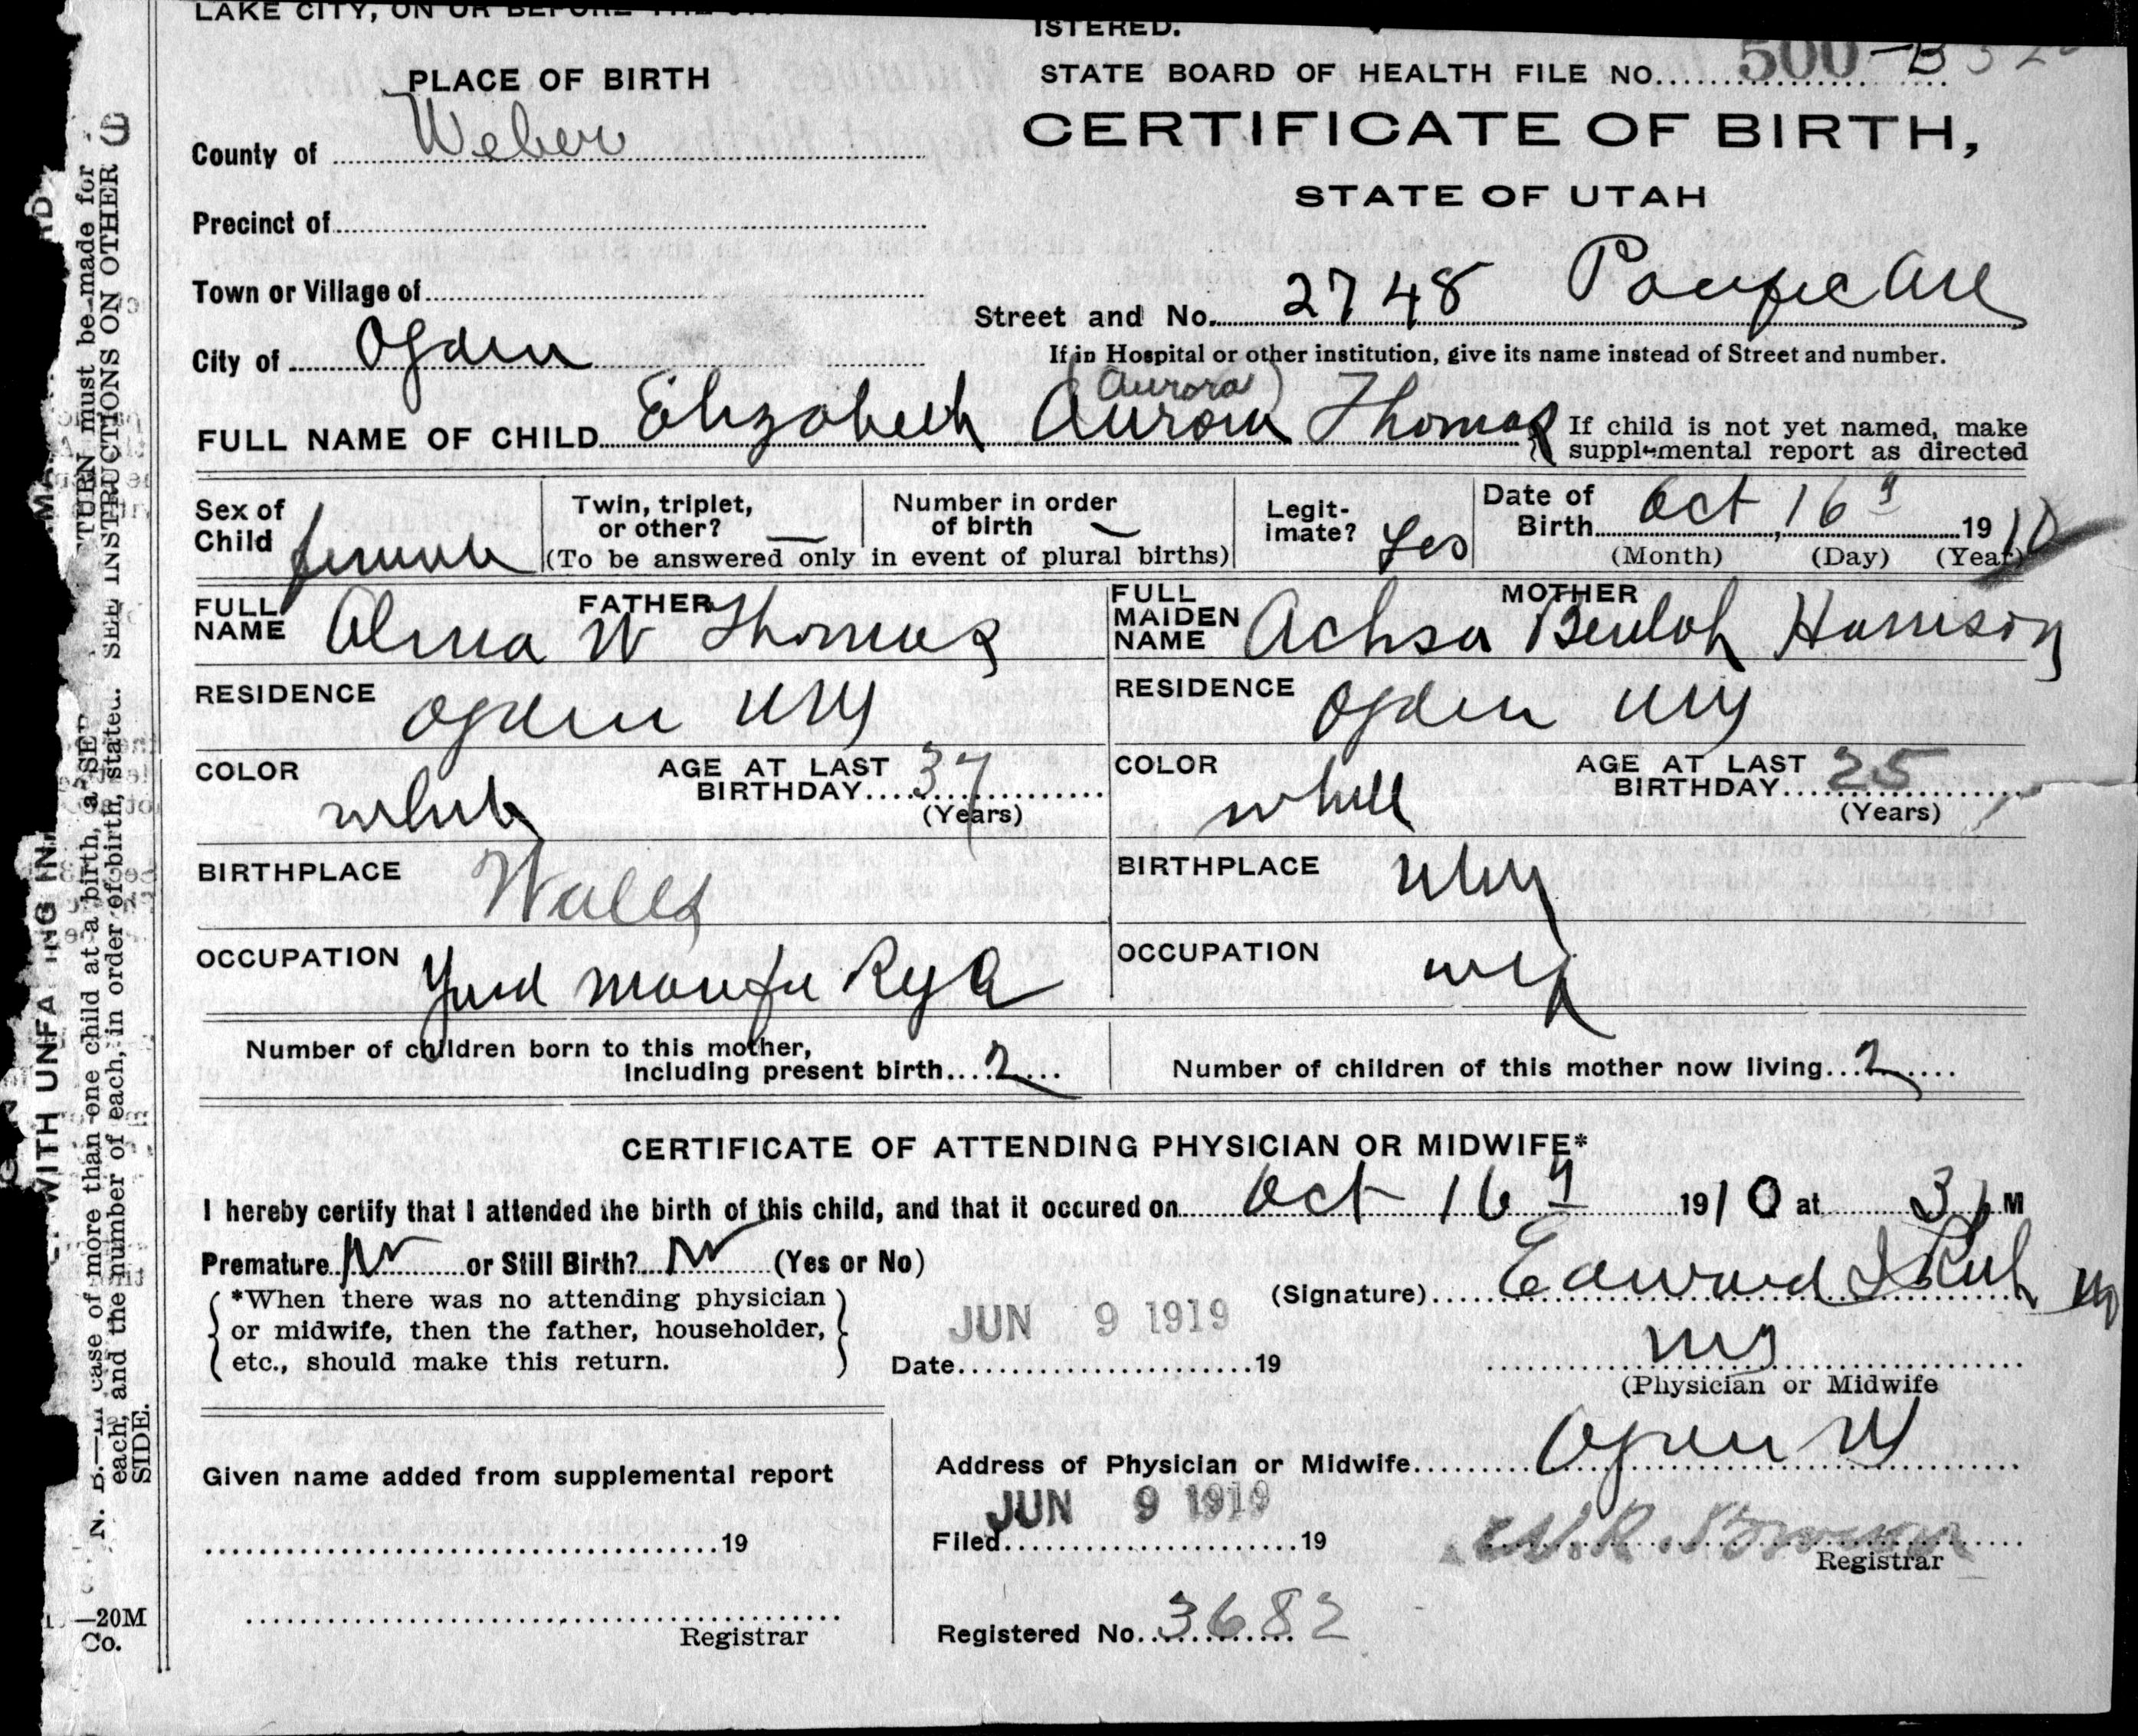 LAKE CITY, ON OR BEFORE THE
ISTERED.
PLACE OF BIRTH
STATE BOARD OF HEALTH FILE NO. 500-B
CERTIFICATE OF BIRTH,
STATE OF UTAH
County of Weber
Precinct of
Town or Village of
Street and No. 2748 Pacific Ave
City of Ogden
If in Hospital or other institution, give its name instead of Street and number.
(Aurora)
FULL NAME OF CHILD Elizabeth Aurora Thomas
If child is not yet named, make
supplemental report as directed
Sex of Child female
Twin, triplet, or other? —
Number in order of birth —
(To be answered only in event of plural births)
Legit-imate? Yes
Date of Birth Oct, 16 1910
(Month) (Day) (Year)
FATHER
FULL NAME Alma W Thomas
MOTHER
FULL MAIDEN NAME Achsa Beulah Harrison
RESIDENCE Ogden
RESIDENCE Ogden
COLOR white
AGE AT LAST BIRTHDAY 37
(Years)
COLOR white
AGE AT LAST BIRTHDAY 25
(Years)
BIRTHPLACE Wales
BIRTHPLACE
OCCUPATION Yard
OCCUPATION wife
Number of children born to this mother,
including present birth 2
Number of children of this mother now living 2
CERTIFICATE OF ATTENDING PHYSICIAN OR MIDWIFE*
I hereby certify that I attended the birth of this child, and that it occured on Oct 16 1910 at 3 M
Premature No or Still Birth? No (Yes or No)
(Signature) Edward I Rich
*When there was no attending physician
or midwife, then the father, householder,
etc., should make this return.
JUN 9 1919
Date 19
(Physician or Midwife
Address of Physician or Midwife Ogden
Given name added from supplemental report
19
Registrar
JUN 9 1919
Filed 19
Registrar
Registered No. 3682
WITH UNFA ING IN
N. B.—In case of more than one child at a birth, a SEP TURN must be made for
each, and the number of each, in order of birth, stated. SEE INSTRUCTIONS ON OTHER
SIDE.
—20M
Co.